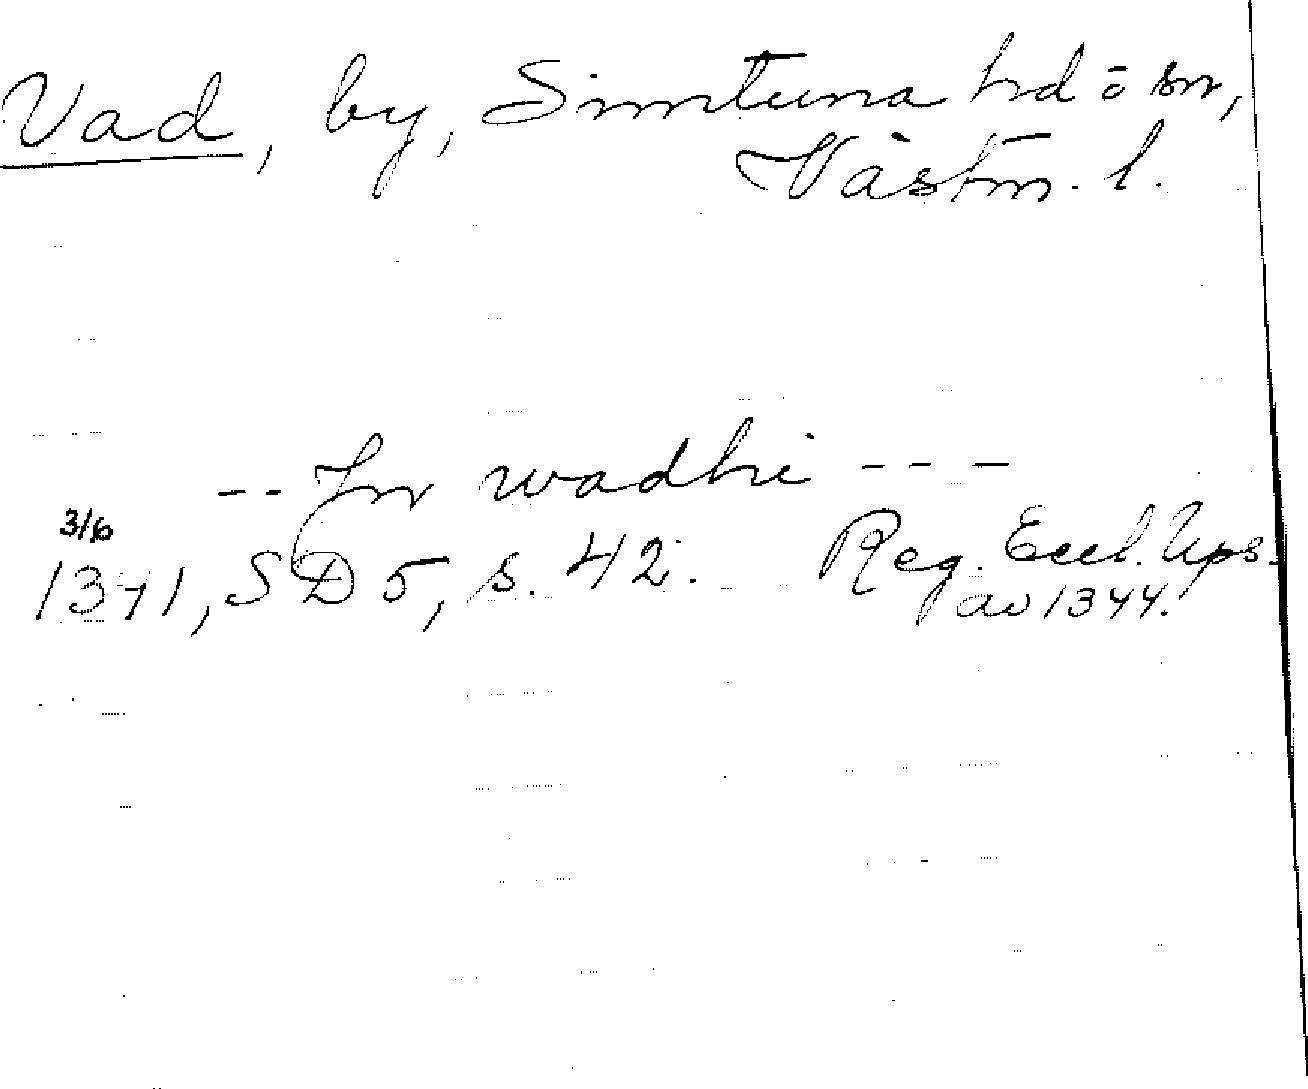 Vad, by, Simtuna hd o sn,
Västm. l.
-- In wadhi ---
3/6
1341, SD 5, s. 42. Reg. Eccl. Ups.
av 1344.